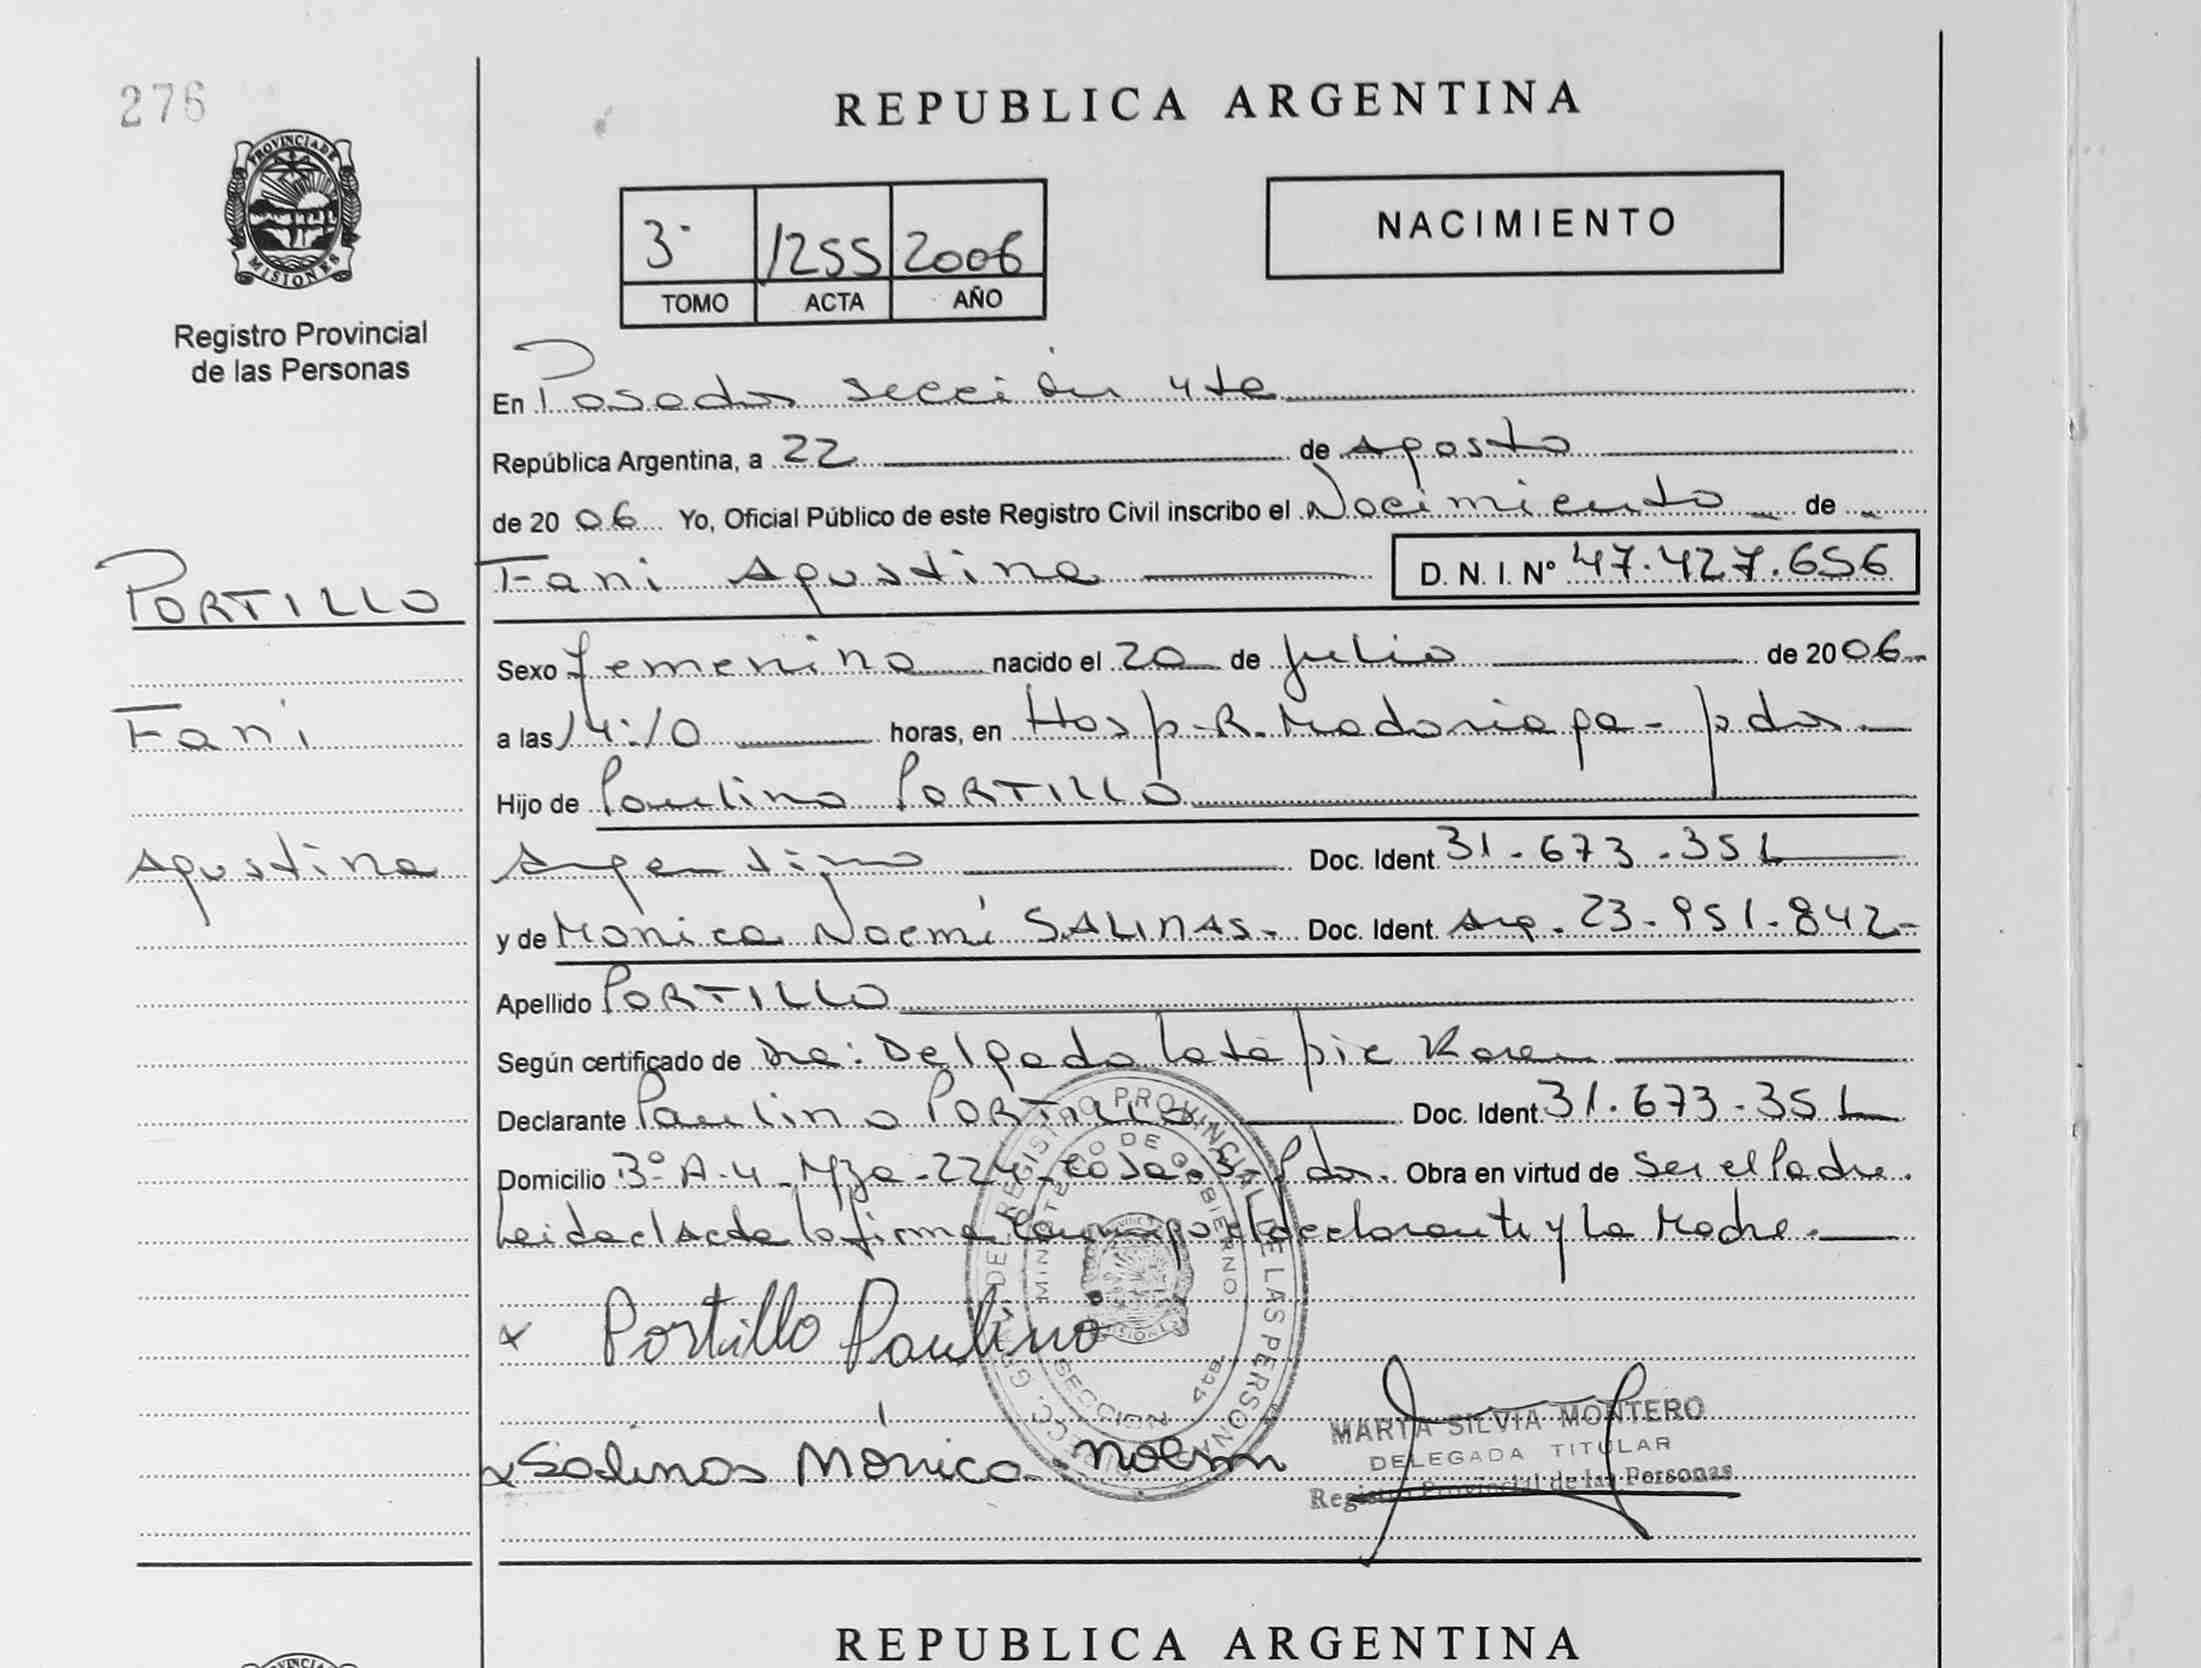 276
PROVINCIA DE
MISIONES
Registro Provincial
de las Personas
REPUBLICA ARGENTINA
3º 1255 2006
TOMO ACTA AÑO
NACIMIENTO
En Posadas sección 4ta
República Argentina, a 22 de Agosto
de 2006 Yo, Oficial Público de este Registro Civil inscribo el Nacimiento de
Fani Agustina D. N. I. Nº 47.427.656
PORTILLO
Fani
Agustina
Sexo femenino nacido el 20 de Julio de 2006
a las 14:10 horas, en Hosp. R. Madariaga - pdas.
Hijo de Paulino PORTILLO
Argentino Doc. Ident. 31.673.351
y de Monica Noemí SALINAS.- Doc. Ident. Arg. 23.951.842-
Apellido PORTILLO
Según certificado de Dra: Delgado Latapie Karen
Declarante Paulino PORTILLO Doc. Ident. 31.673.351
Domicilio 3º A-4 - Mza - 224 - casa. Pdas. Obra en virtud de Ser el Padre.
Leida el Acta la firma conmigo el declarante y La Madre.
REGISTRO PROVINCIAL DE LAS PERSONAS
MINISTERIO DE GOBIERNO
SECCION 4ta
Portillo Paulino
Salinas Mónica Noemi
MARTA SILVIA MONTERO
DELEGADA TITULAR
Registro Provincial de las Personas
REPUBLICA ARGENTINA